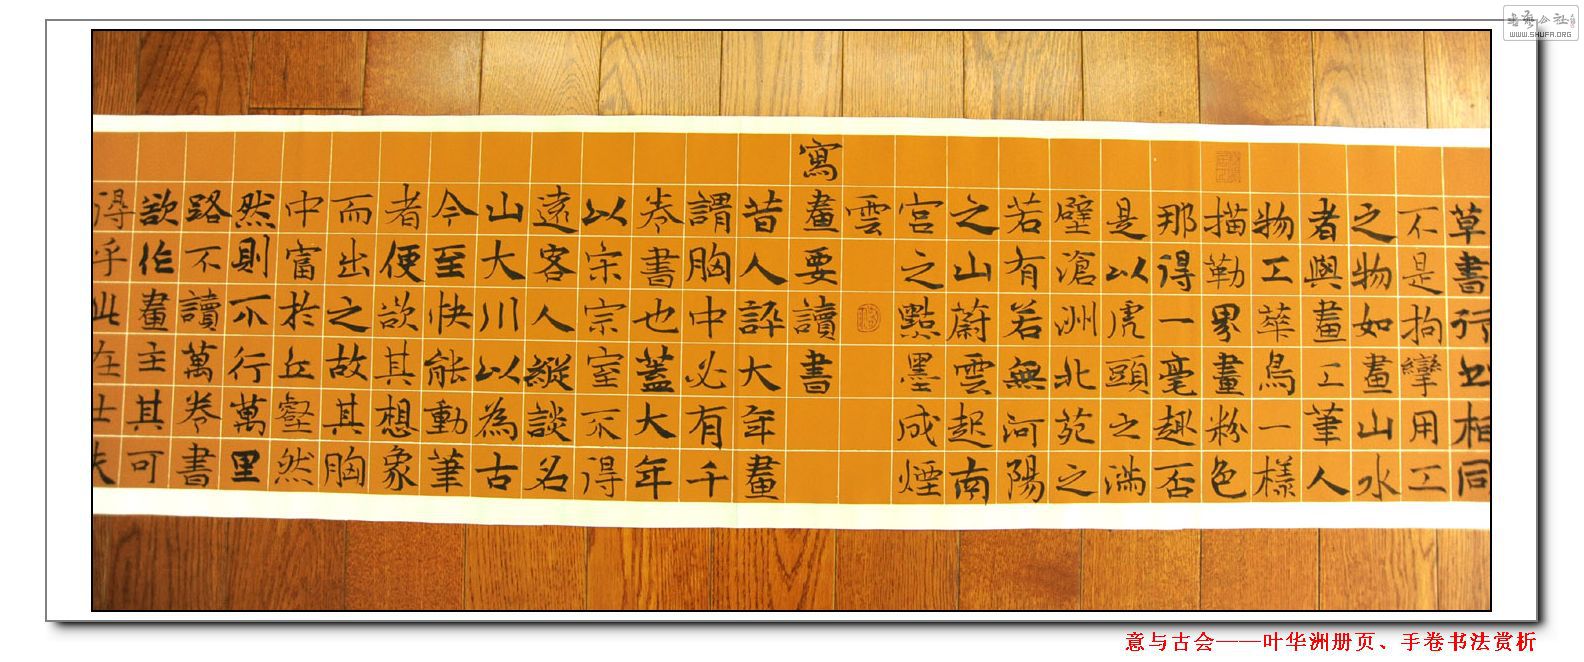 草書行相同
不是拘攣用工
之物如畫山水
者與畫工筆人
物工華鳥一樣
描勒界畫粉色
那得一毫趣否
是以虎頭之滿
壁滄洲北苑之
若有若無河陽
之山蔚雲起南
宮之點墨成煙
雲
寫畫要讀書
昔人評大年畫
謂胸中必有千
卷書也蓋大年
以宗宗室不得
遠客人縱談名
山大川以為古
今至快能動筆
者便欲其想象
而出之故其胸
中富於丘壑然
然則不行萬里
路不讀萬卷書
欲作畫主其可
得乎此在士夫
意与古会——叶华洲册页、手卷书法赏析
WWW.SHUFA.ORG